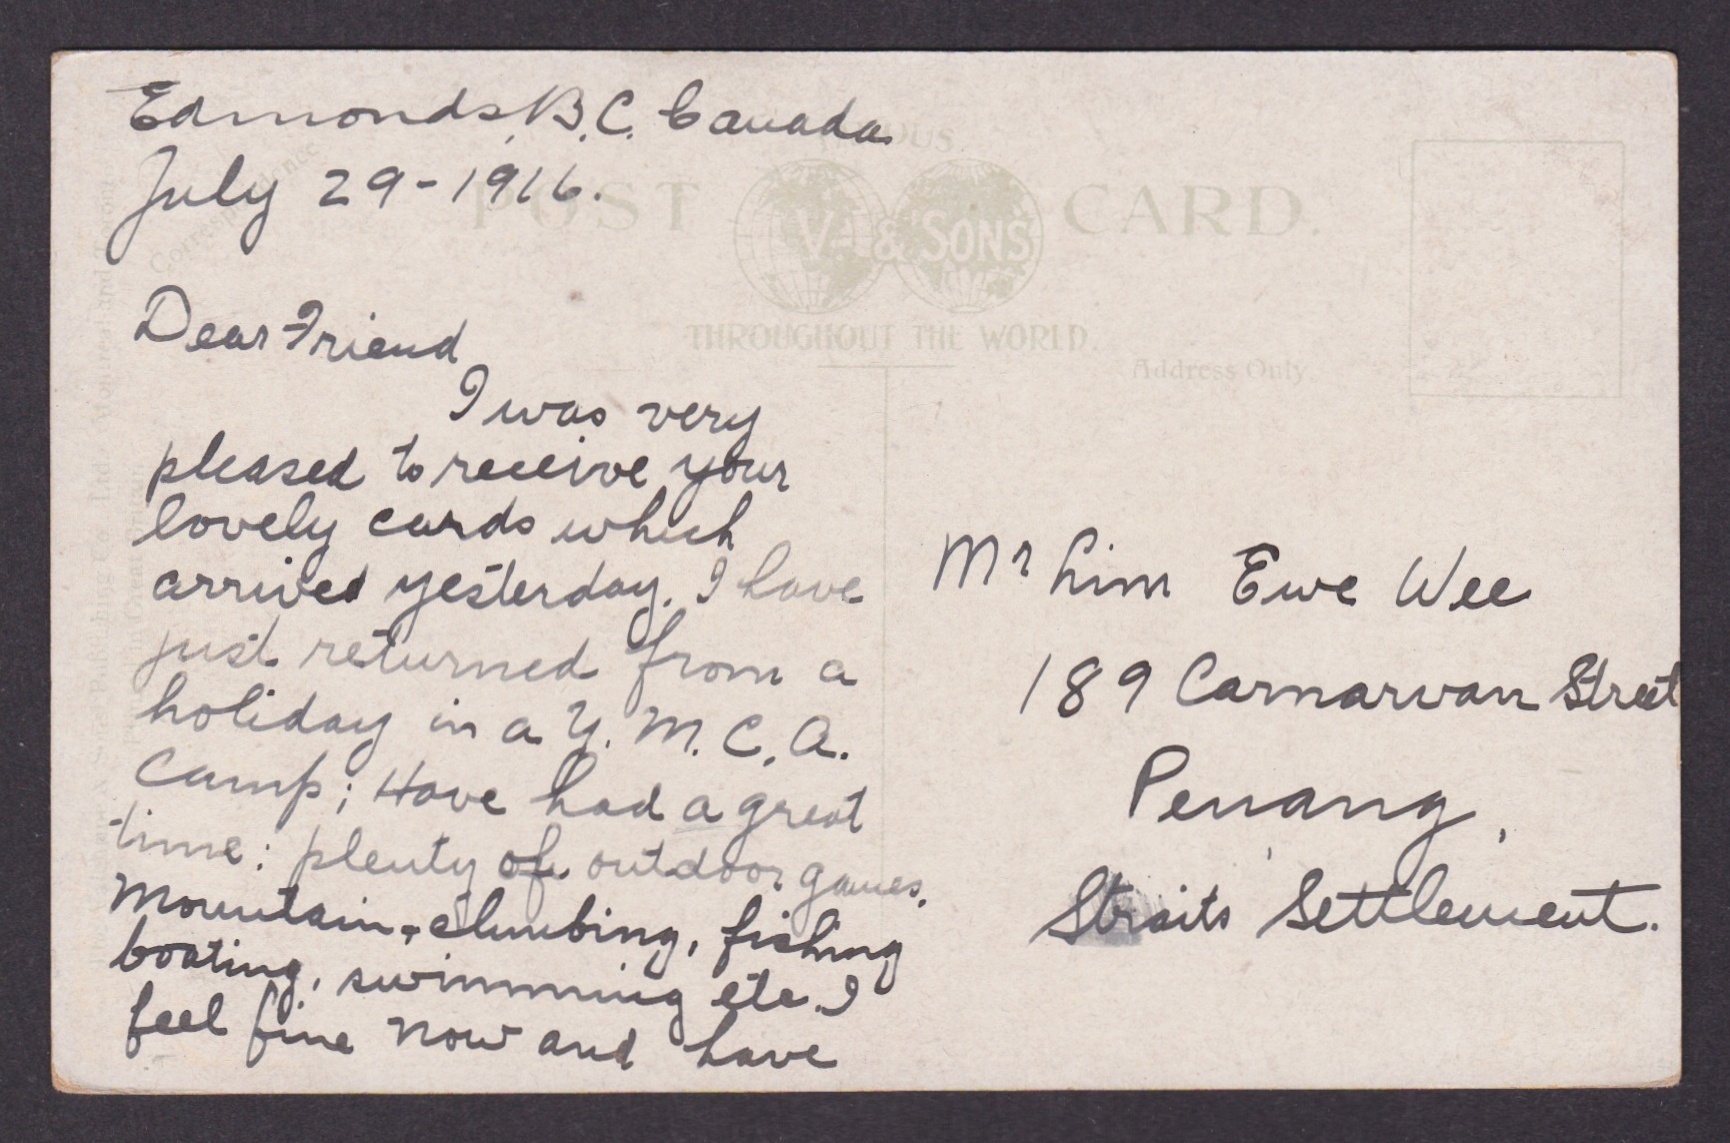 Edmonds, B.C. Canada
July 29-1916.
Correspondence
POST CARD.
V. & SONS
THROUGHOUT THE WORLD.
Address Only.
Dear Friend
I was very
pleased to receive your
lovely cards which
arrived yesterday. I have
just returned from a
holiday in a Y. M. C. A.
Camp; Have had a great
time: plenty of outdoor games.
Mountain-climbing, fishing
boating, swimming etc. I
feel fine now and have
Mr Lim Ewe Wee
189 Carnarvan Street
Penang,
Straits Settlement.